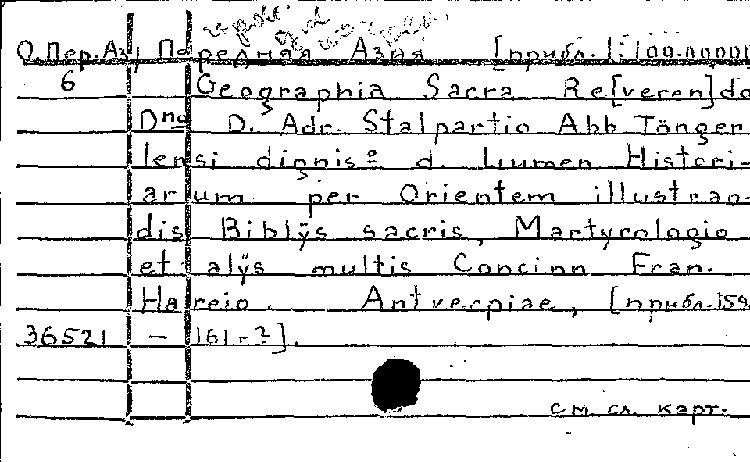 О.Пер.Аз. Передняя Азия [прибл. 1:100.00000
6 Geographia Sacra Re[veren]do
Dno D. Adr. Stalpartio Abb Tonger
lensi dignisᵒ d. Lumen Histori-
arum per Orientem illustran-
dis Biblÿs sacris, Martyrologio
et alÿs multis Concinn Fran.
Hareio. Antverpiae, [прибл. 159
36521 – 161-?].
см. сл. карт.